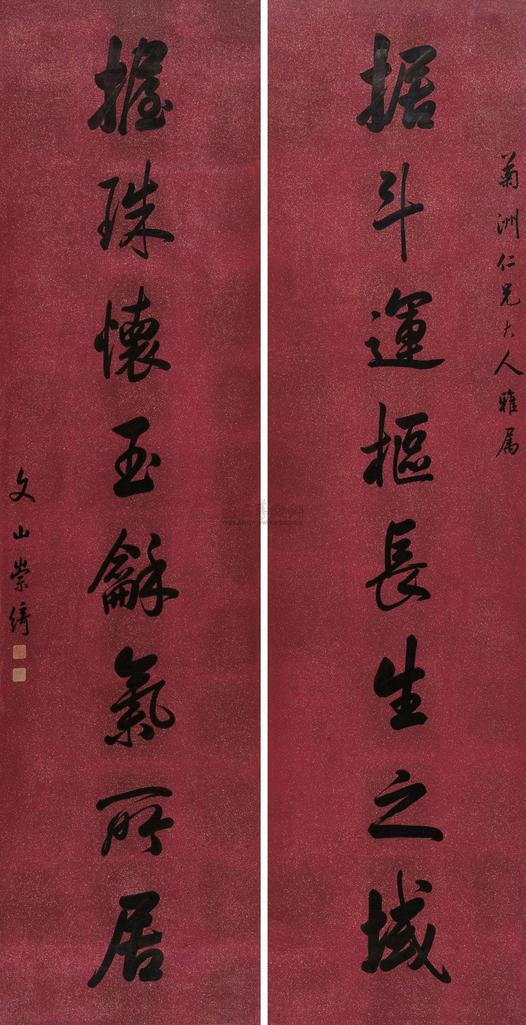 菊洲仁兄大人雅属
据斗運樞長生之域
握珠懷玉龢氣所居
文山崇綺